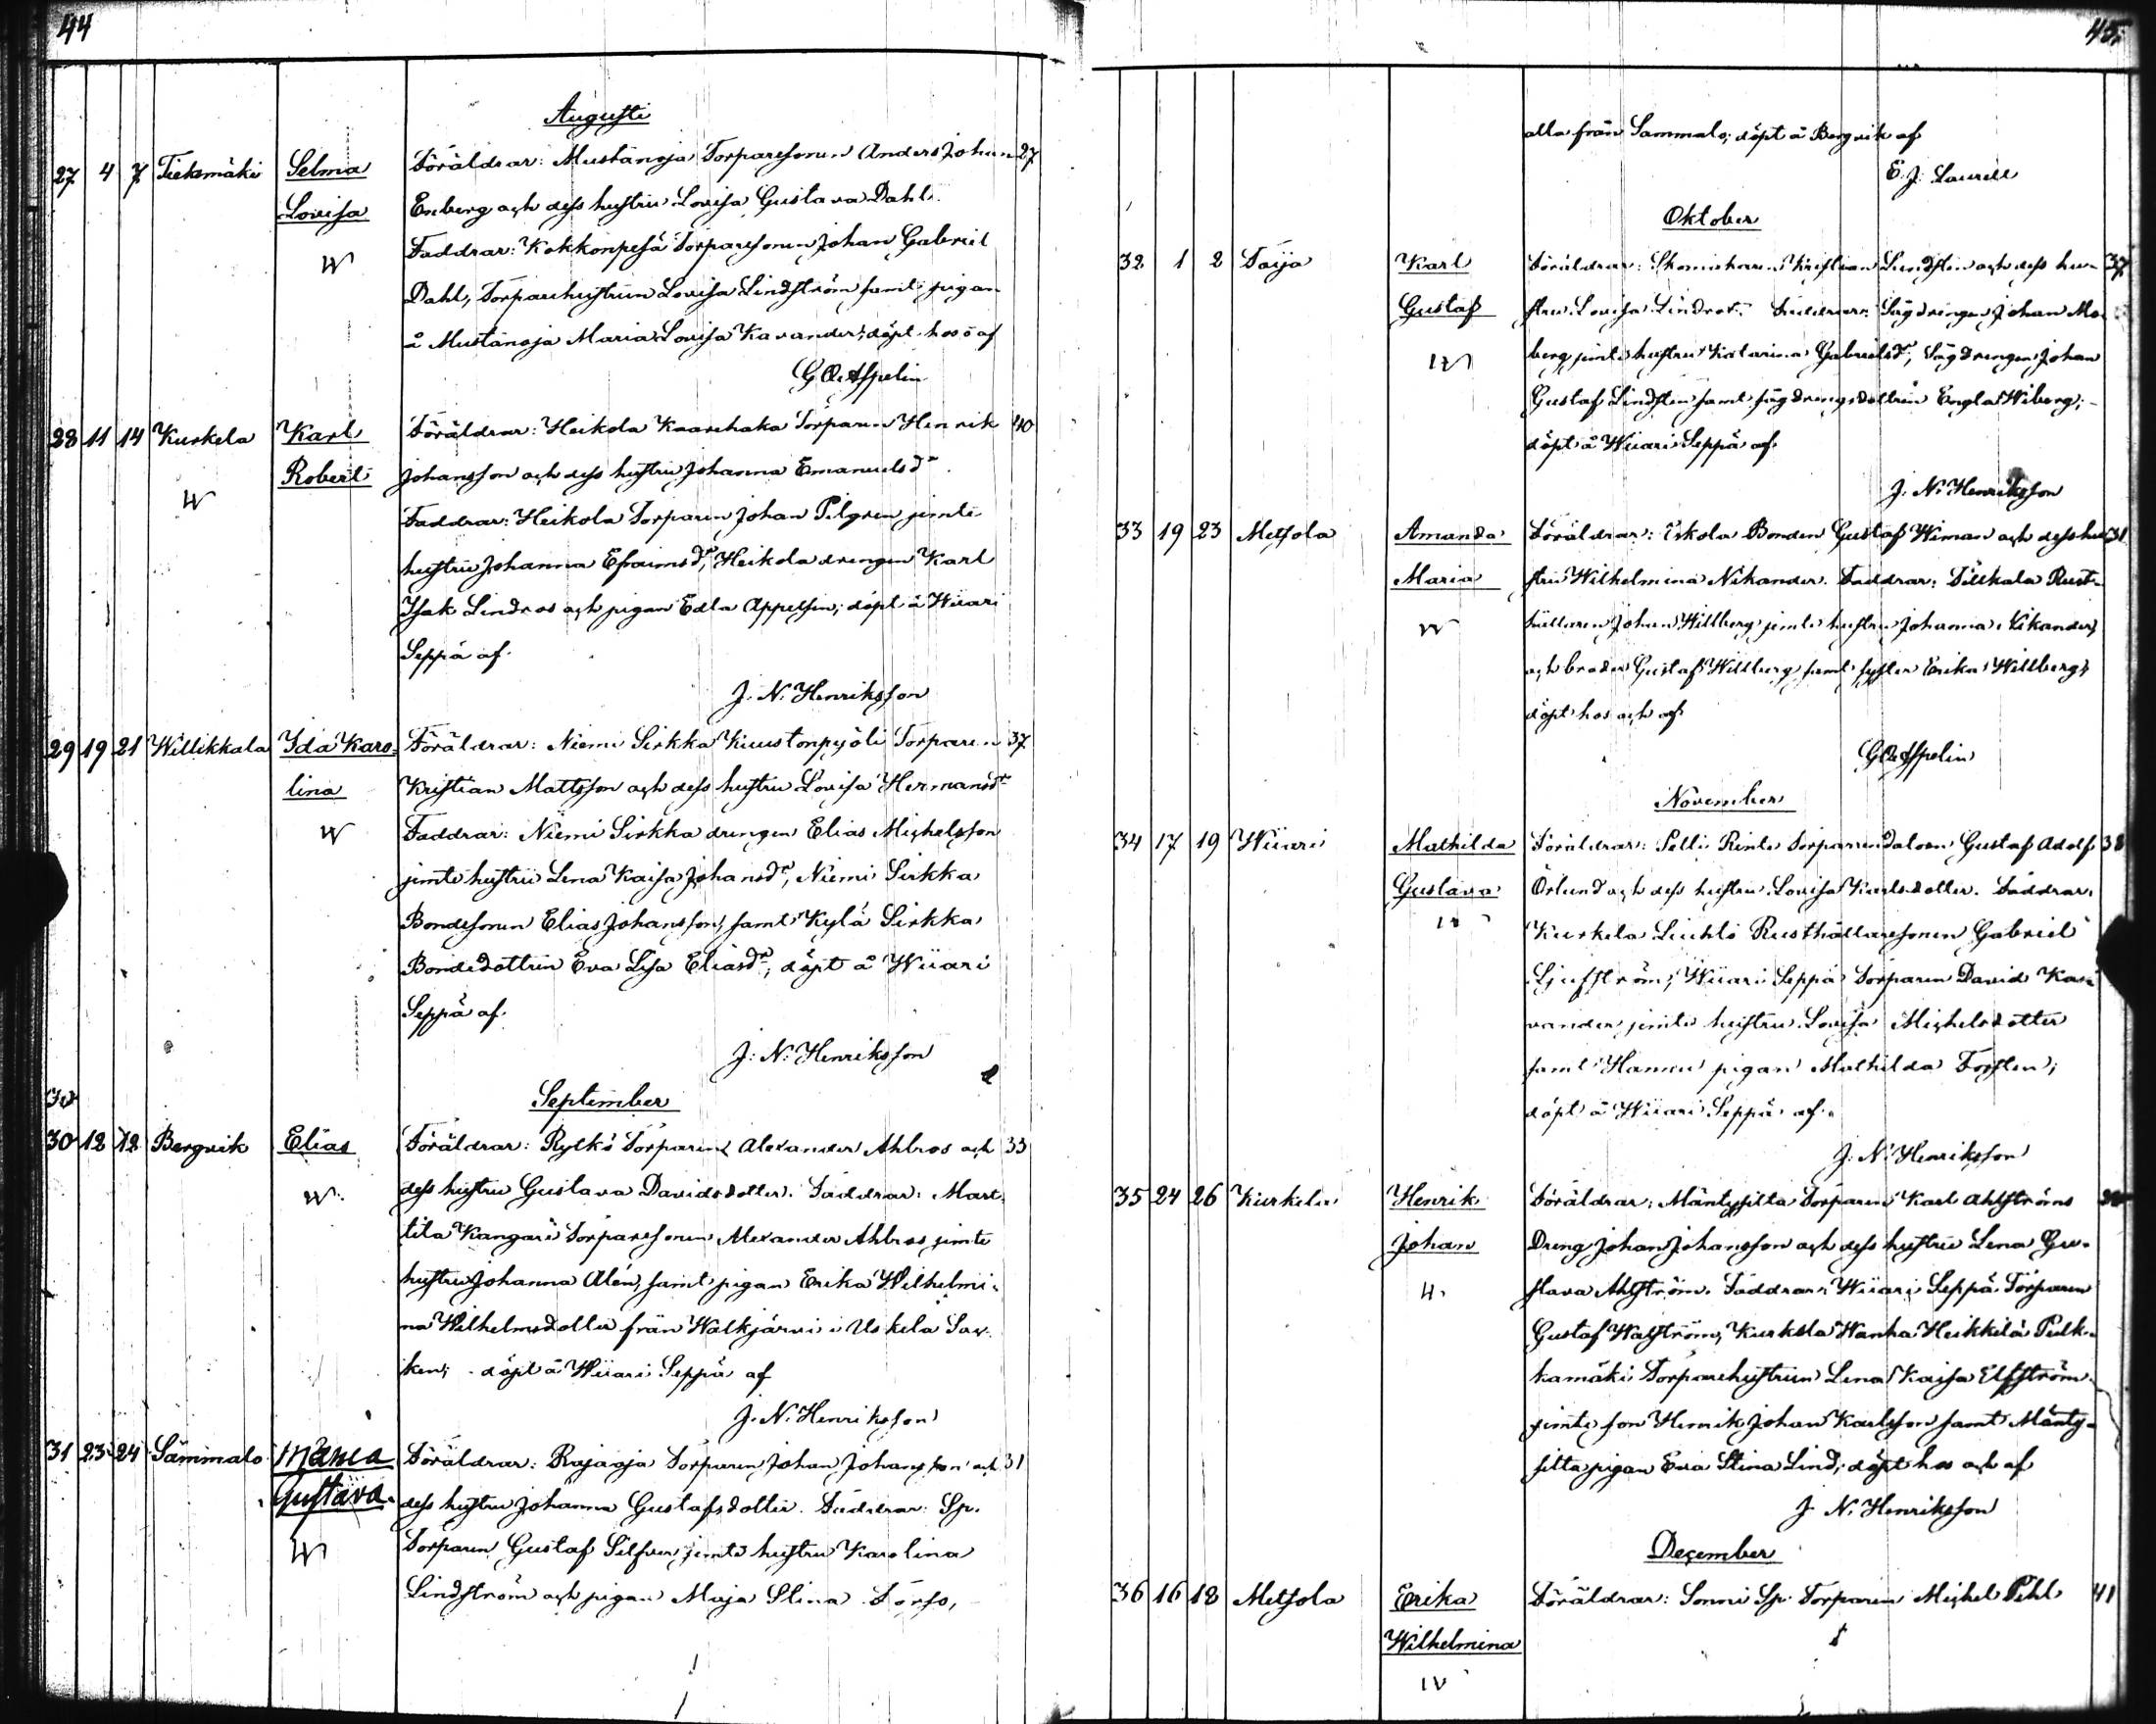 44
Augusti
27 4 7 Tieksmäki Selma Föräldrar: Mustanoja Torparesonen Anders Johan 27
Lovisa Enberg och dess hustru Lovisa Gustava Dahl.
Faddrar: Kokkonpesä Torparesonen Johan Gabriel
Dahl, Torparehustrun Lovisa Lindström samt pigan
å Mustanoja Maria Lovisa Kavander; döpt hos o af
G. A. Aspelin
28 11 14 Kurkela Karl Föräldrar: Heikola Kaarehaka Torparen Henrik 40
Robert Johansson och dess hustru Johanna Emanuelsdr.
Faddrar: Heikola Torparen Johan Pilgren jemte
hustru Johanna Efraimsdr, Heikola drengen Karl
Isak Lindros och pigan Edla Appelsin; döpt å Wiiari
Seppä af
J. N. Henriksson
29 19 21 Willikkala Ida Karo- Föräldrar: Niemi Sirkka Kuustonpyöli Torparen 37
lina Kristian Mattsson och dess hustru Lovisa Hermansdr
Faddrar: Niemi Sirkka drengen Elias Michelsson
jemte hustru Lena Kaisa Johansdr, Niemi Sirkka
Bondesonen Elias Johansson, samt Kylä Sirkka
Bondedottren Eva Lisa Eliasdr; döpt å Wiiari
Seppä af
J. N. Henriksson
September
30 12 12 Bergvik Elias Föräldrar: Rylkö Torparen Alexander Ahlros och 33
dess hustru Gustava Davidsdotter. Faddrar: Mart-
tila Kangari Torparesonen Alexander Ahlros jemte
hustru Johanna Alén, samt pigan Erika Wilhelmi-
na Wilhelmsdotter från Walkjärvi i Uskela Soc-
ken; döpt å Wiiari Seppä af
J. N. Henriksson
31 23 24 Sammalo Manda Föräldrar: Rajaoja Torparen Johan Johansson och 31
Gustava dess hustru Johanna Gustafsdotter. Faddrar: Sp.
Torparen Gustaf Silfver jemte hustru Karolina
Lindström och pigan Maja Stina
45
alla från Sammalo; döpt å Bergvik af
E. J. Laurell
Oktober
32 1 2 Karl Föräldrar: Skomakaren Kristian Lindsten och dess hu- 37
Gustaf stru Lovisa Lindrot. Faddrar: Sågdrengen Johan Mo-
berg jemte hustru Katarina Gabrielsdr, Sågdrengen Johan
Gustaf Lindsten samt sågdrengsdottren Engla Wiberg;
döpt å Wiiari Seppä af
J. N. Henriksson
33 19 23 Metsola Amanda Föräldrar: Eskola Bonden Gustaf Wiman och dess hu- 31
Maria stru Wilhelmina Nikander. Faddrar: Rust-
hållaren Johan Willberg jemte hustru Johanna Nikander
och broder Gustaf Willberg samt syster Erika Willberg;
döpt hos och af
G. A. Aspelin
November
34 17 19 Wiiari Mathilda Föräldrar: Torparen Gustaf Adolf 38
Gustava Örlund och dess hustru Lovisa Karlsdotter. Faddrar:
Kurkela Rusthållaresonen Gabriel
Ljufström, Wiiari Seppä Torparen David Ka-
vander jemte hustru Lovisa Michelsdotter
samt pigan Mathilda Forsten;
döpt å Wiiari Seppä af
J. N. Henriksson
35 24 26 Kurkela Henrik Föräldrar: Mäntysilta Torparen Karl Ahlströms
Johan Dreng Johan Johansson och dess hustru Lena Gu-
stava Ahlström. Faddrar: Wiiari Seppä Torparen
Gustaf Walström, Kurkela Wanha Heikkilä Pulk-
kamäki Torparehustrun Lena Kaisa Elfström
jemte son Henrik Johan Karlsson samt Mänty-
silta pigan Eva Stina Lind; döpt hos och af
J. N. Henriksson
December
36 16 18 Metsola Erika Föräldrar: Sonni Sp. Torparen Michel Pihl 41
Wilhelmina